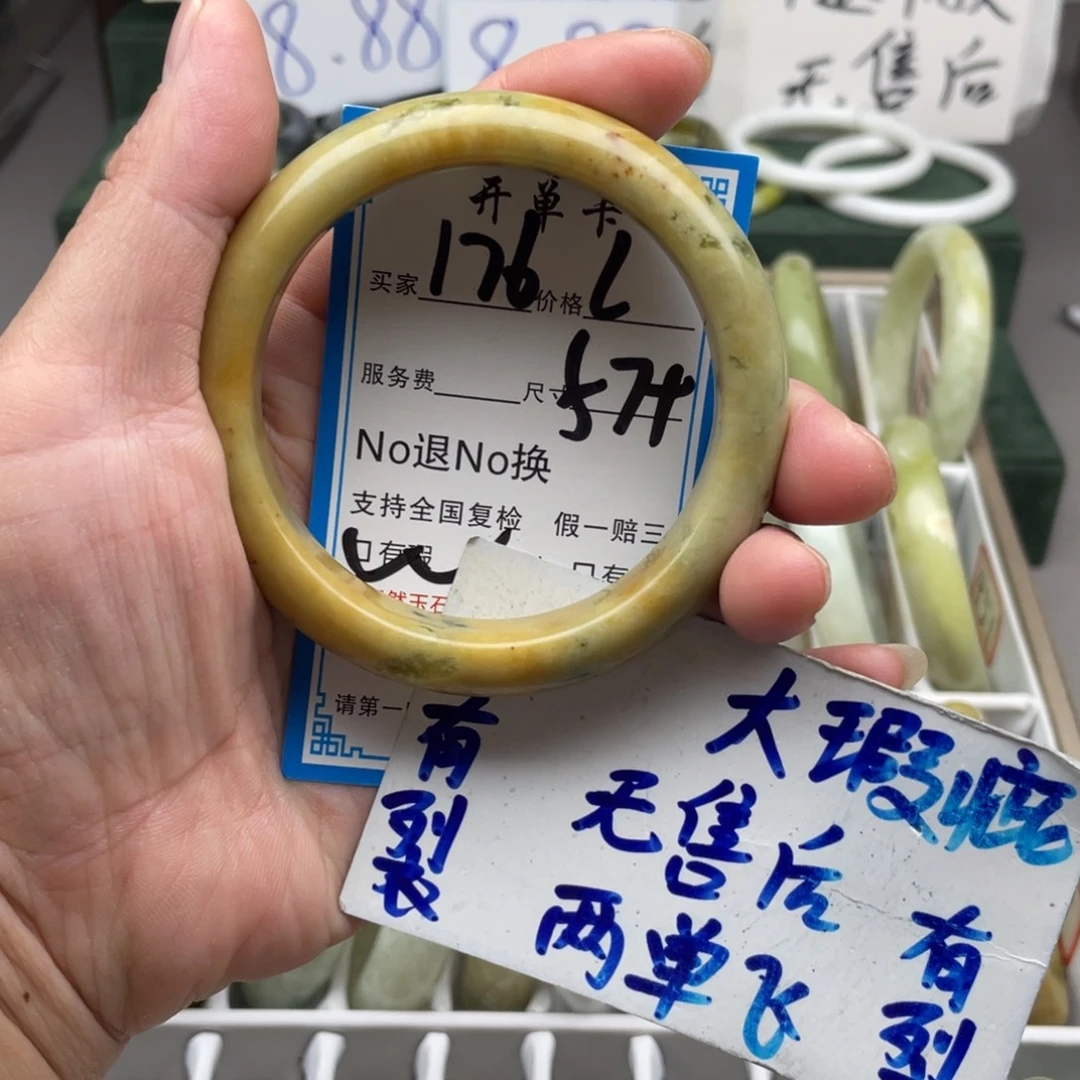 8.88
8.8
无售后
开单卡
买家 176 价格 L
服务费 尺寸 574
No退No换
支持全国复检 假一赔三
口有瑕 口有
然玉石
请第一
有裂
大瑕疵
无售后
两单飞
有裂